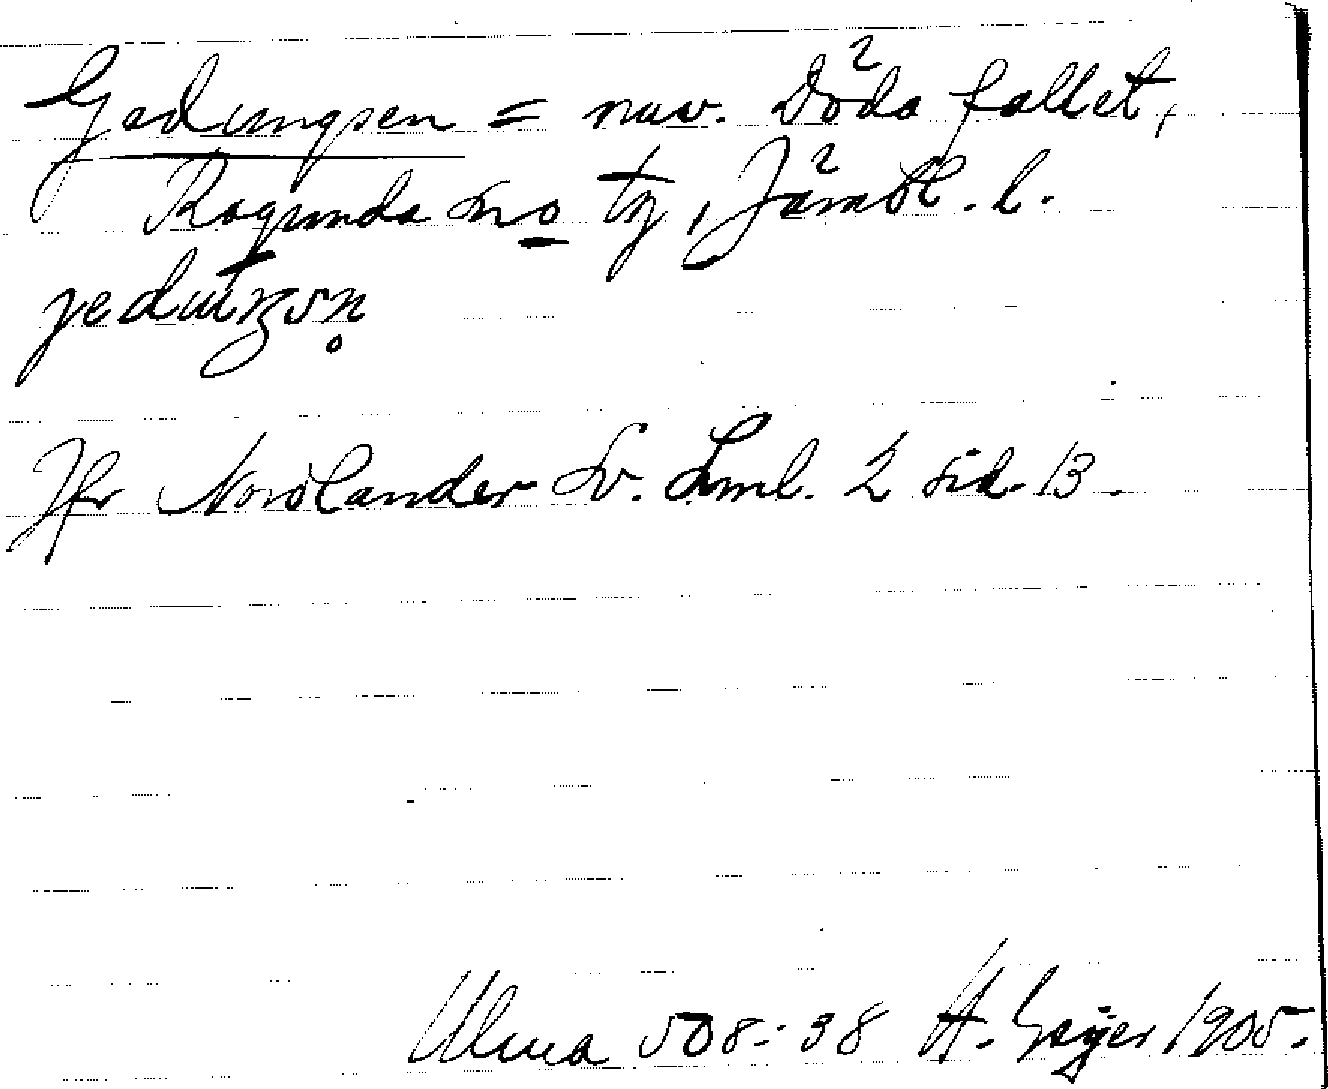 Gedungsen = nuv. Döda fallet,
Ragunda sn o tg, Jämtl. l.
Jfr Nordlander Sv. Lml. 2 sid. 13.
Ulma 508:38 H. Geijer 1905.